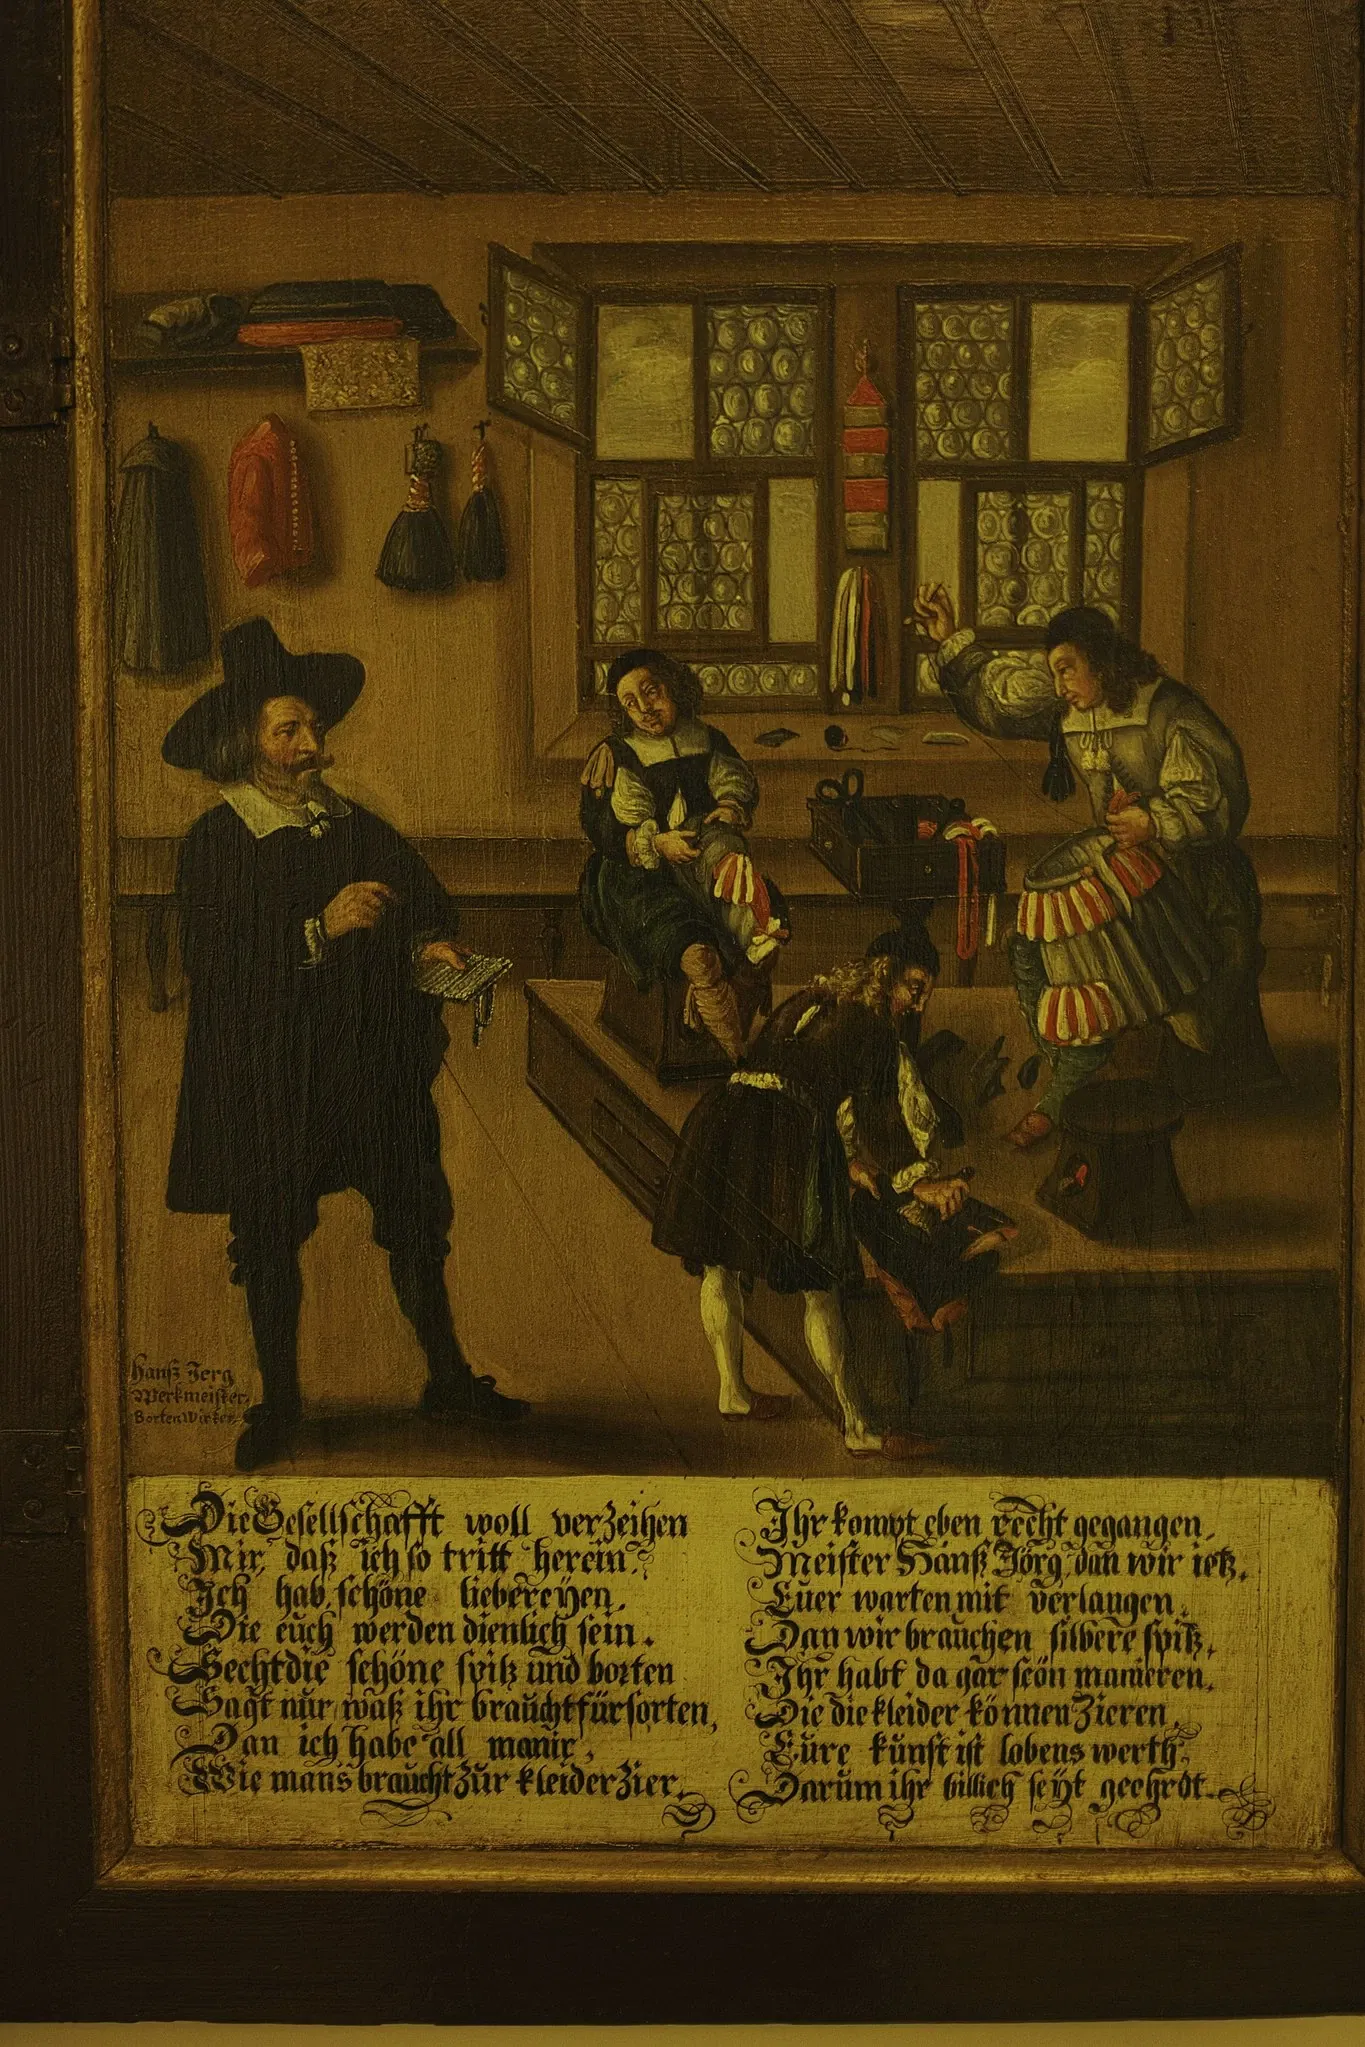 Hanß Jerg
Werkmeister.
BortenWirker.
Die Gesellschafft woll verZeihen
Mir, daß ich so tritt herein.
Ich hab, schöne liebereÿen,
Die euch werden dienlich sein.
Secht die schöne spitz und borten
Sagt nur, waß ihr braucht für sorten,
Dan ich habe all manir,
Wie mans braucht Zur kleider Zier.
Ihr kompt eben recht gegangen,
Meister Hanß Jörg, dan wir ietz,
Euer warten mit verlangen,
Dan wir brauchen silbere spitz,
Ihr habt da gar scön manieren,
Die die kleider können Zieren,
Eure kunst ist lobens werth,
Darum ihr billich seÿt geehrdt.